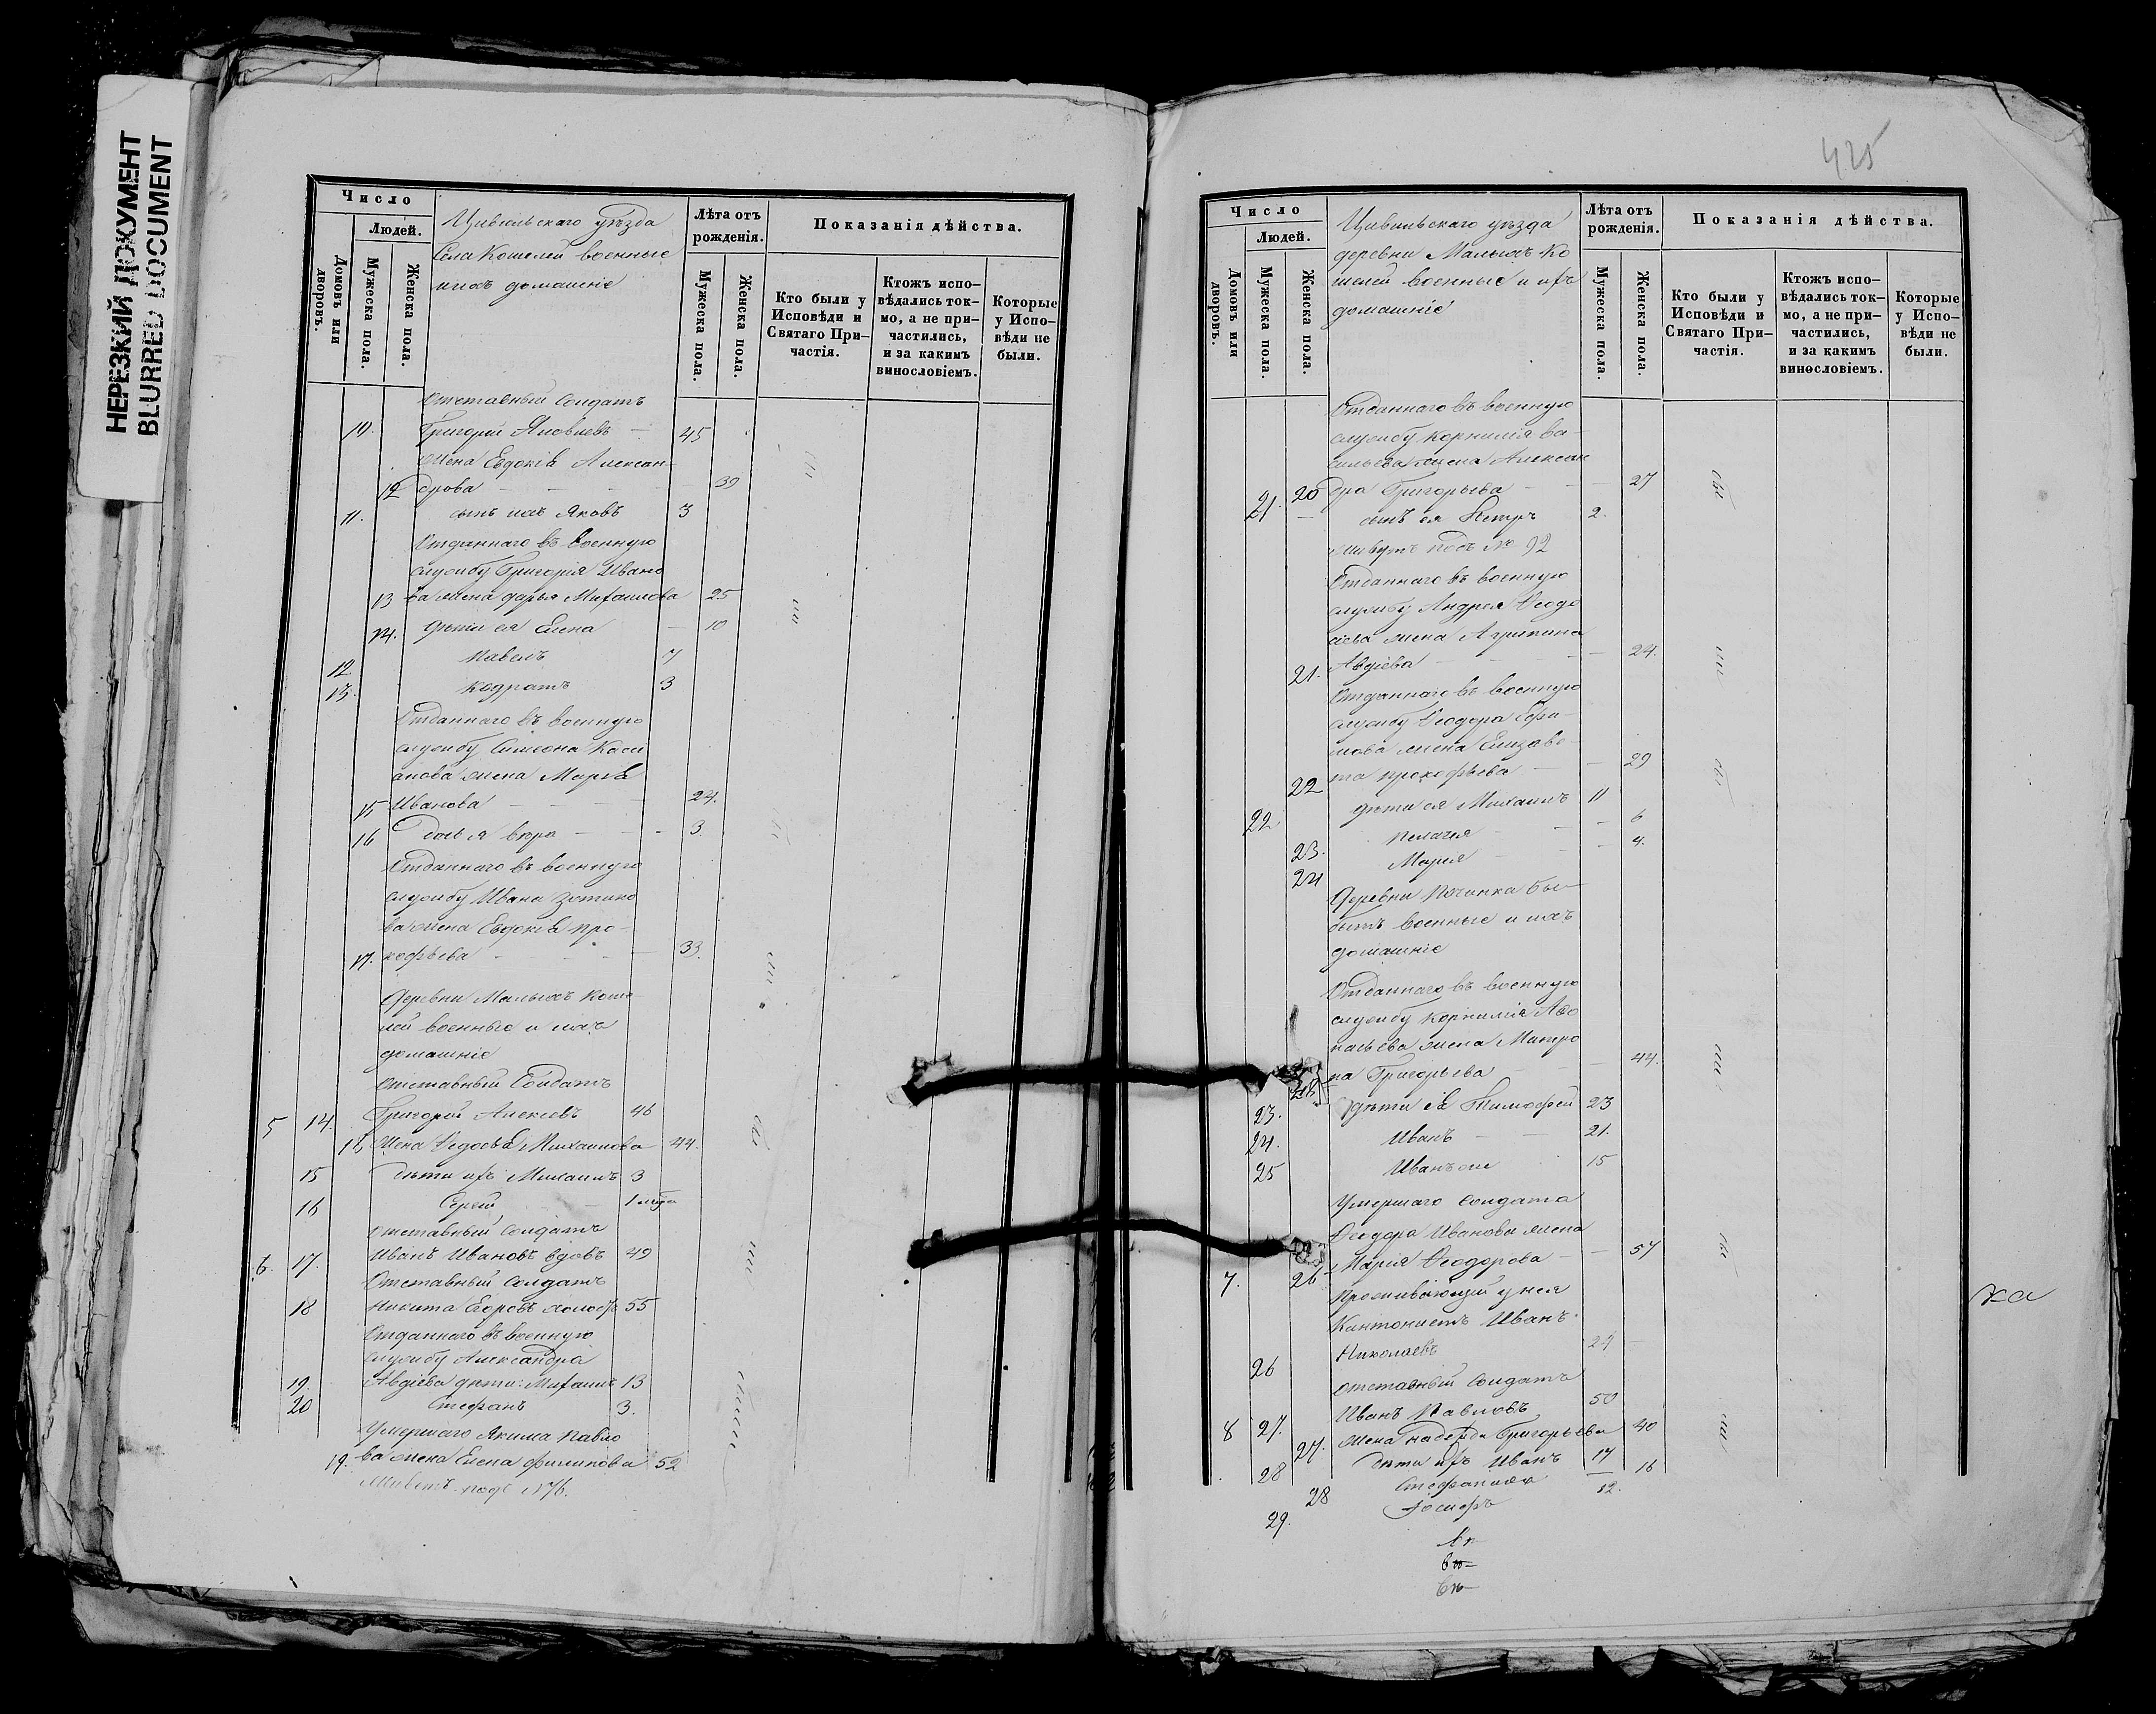 НЕРЕЗКИЙ ДОКУМЕНТ
BLURRED DOCUMENT
Число
Людей.
Домовъ или дворовъ.
Мужеска пола.
Женска пола.
Цивильскаго уѣзда
Села Кошелей военные
и ихъ домашніе
Лѣта отъ рожденія.
Мужеска пола.
Женска пола.
Показанія дѣйства.
Кто были у Исповѣди и Святаго При-частія.
Ктожъ испо-вѣдались ток-мо, а не при-частились, и за какимъ винословіемъ.
Которые у Испо-вѣди не были.
Отставный Солдатъ
10. Григорій Яковлевъ 45
Жена Евдокія Алексан
12 дрова 39
11. сынъ ихъ Яковъ 3
Отданнаго въ военную
службу Григорія Ивано
13 ва жена Дарья Михаилова 25
14. дѣти ея Елена 10
12 Павелъ 7
13. Кодратъ 3
Отданнаго въ военную
службу Симеона Каси
анова жена Марѳа
15 Иванова 24.
16 дочь я вѣра 3
Отданнаго въ военную
службу Ивана Зотико
ва жена Евдокія Про-
17. кофьева 33.
Деревни Малыхъ Коше
лей военные и ихъ
домашніе
Отставный Солдатъ
5 14. Григорій Алексѣевъ 46
18 Жена Ѳедосья Михаилова 44.
15 дѣти ихъ Михаилъ 3
16 Сергей 1 мѣс
отставный Солдатъ
6. 17. Иванъ Ивановъ вдовъ 49
Отставный Солдатъ
18 Никита Егоровъ холостъ 55
Отданнаго въ военную
службу Александра
19. Авдіева дѣти: Михаилъ 13
20 Стефанъ 3.
Умершаго Якима Павло
19. ва жена Елена Филипова 52
Живетъ подъ №6.
425
Число
Людей.
Домовъ или дворовъ.
Мужеска пола.
Женска пола.
Цивильскаго уѣзда
деревни Малыхъ Ко
шелей военные и ихъ
домашніе
Лѣта отъ рожденія.
Мужеска пола.
Женска пола.
Показанія дѣйства.
Кто были у Исповѣди и Святаго При-частія.
Ктожъ испо-вѣдались ток-мо, а не при-частились, и за какимъ винословіемъ.
Которые у Испо-вѣди не были.
Отданнаго въ военную
службу Корнилія Ва-
сильева жена Алексан
20 дра Григорьева 27
21. сынъ ея Петръ 2.
живутъ подъ № 92
Отданнаго въ военную
службу Андрея Ѳеодо
сіева жена Агрипина
21. Авдіева 24.
Отданнаго въ военную
службу Ѳеодора Ефи-
мова жена Елизаве-
22 та Прокофьева 29
22 дѣти ея Михаилъ 11
23. Пелагея 6
24 Марія 4.
Деревни Починка Бы-
бытъ военные и ихъ
домашніе
Отданнаго въ военную
службу Корнилія Аѳо
насьева жена Матро
25 на Григорьева 44.
23. дѣти ея Тимофей 23
24. Иванъ 21.
25 Иванъ же 15
Умершаго Солдата
Ѳеодора Иванова жена
7. 26 Марія Ѳеодорова 57
проживающій у нея
Кантонистъ Иванъ
26 Николаевъ 29
отставный Солдатъ
8 27. Иванъ Павловъ 50
27. Жена Надежда Григорьева 40
28 дѣти ихъ Иванъ 17
28 Стефанида 16
29. Іосифъ 12.
ка